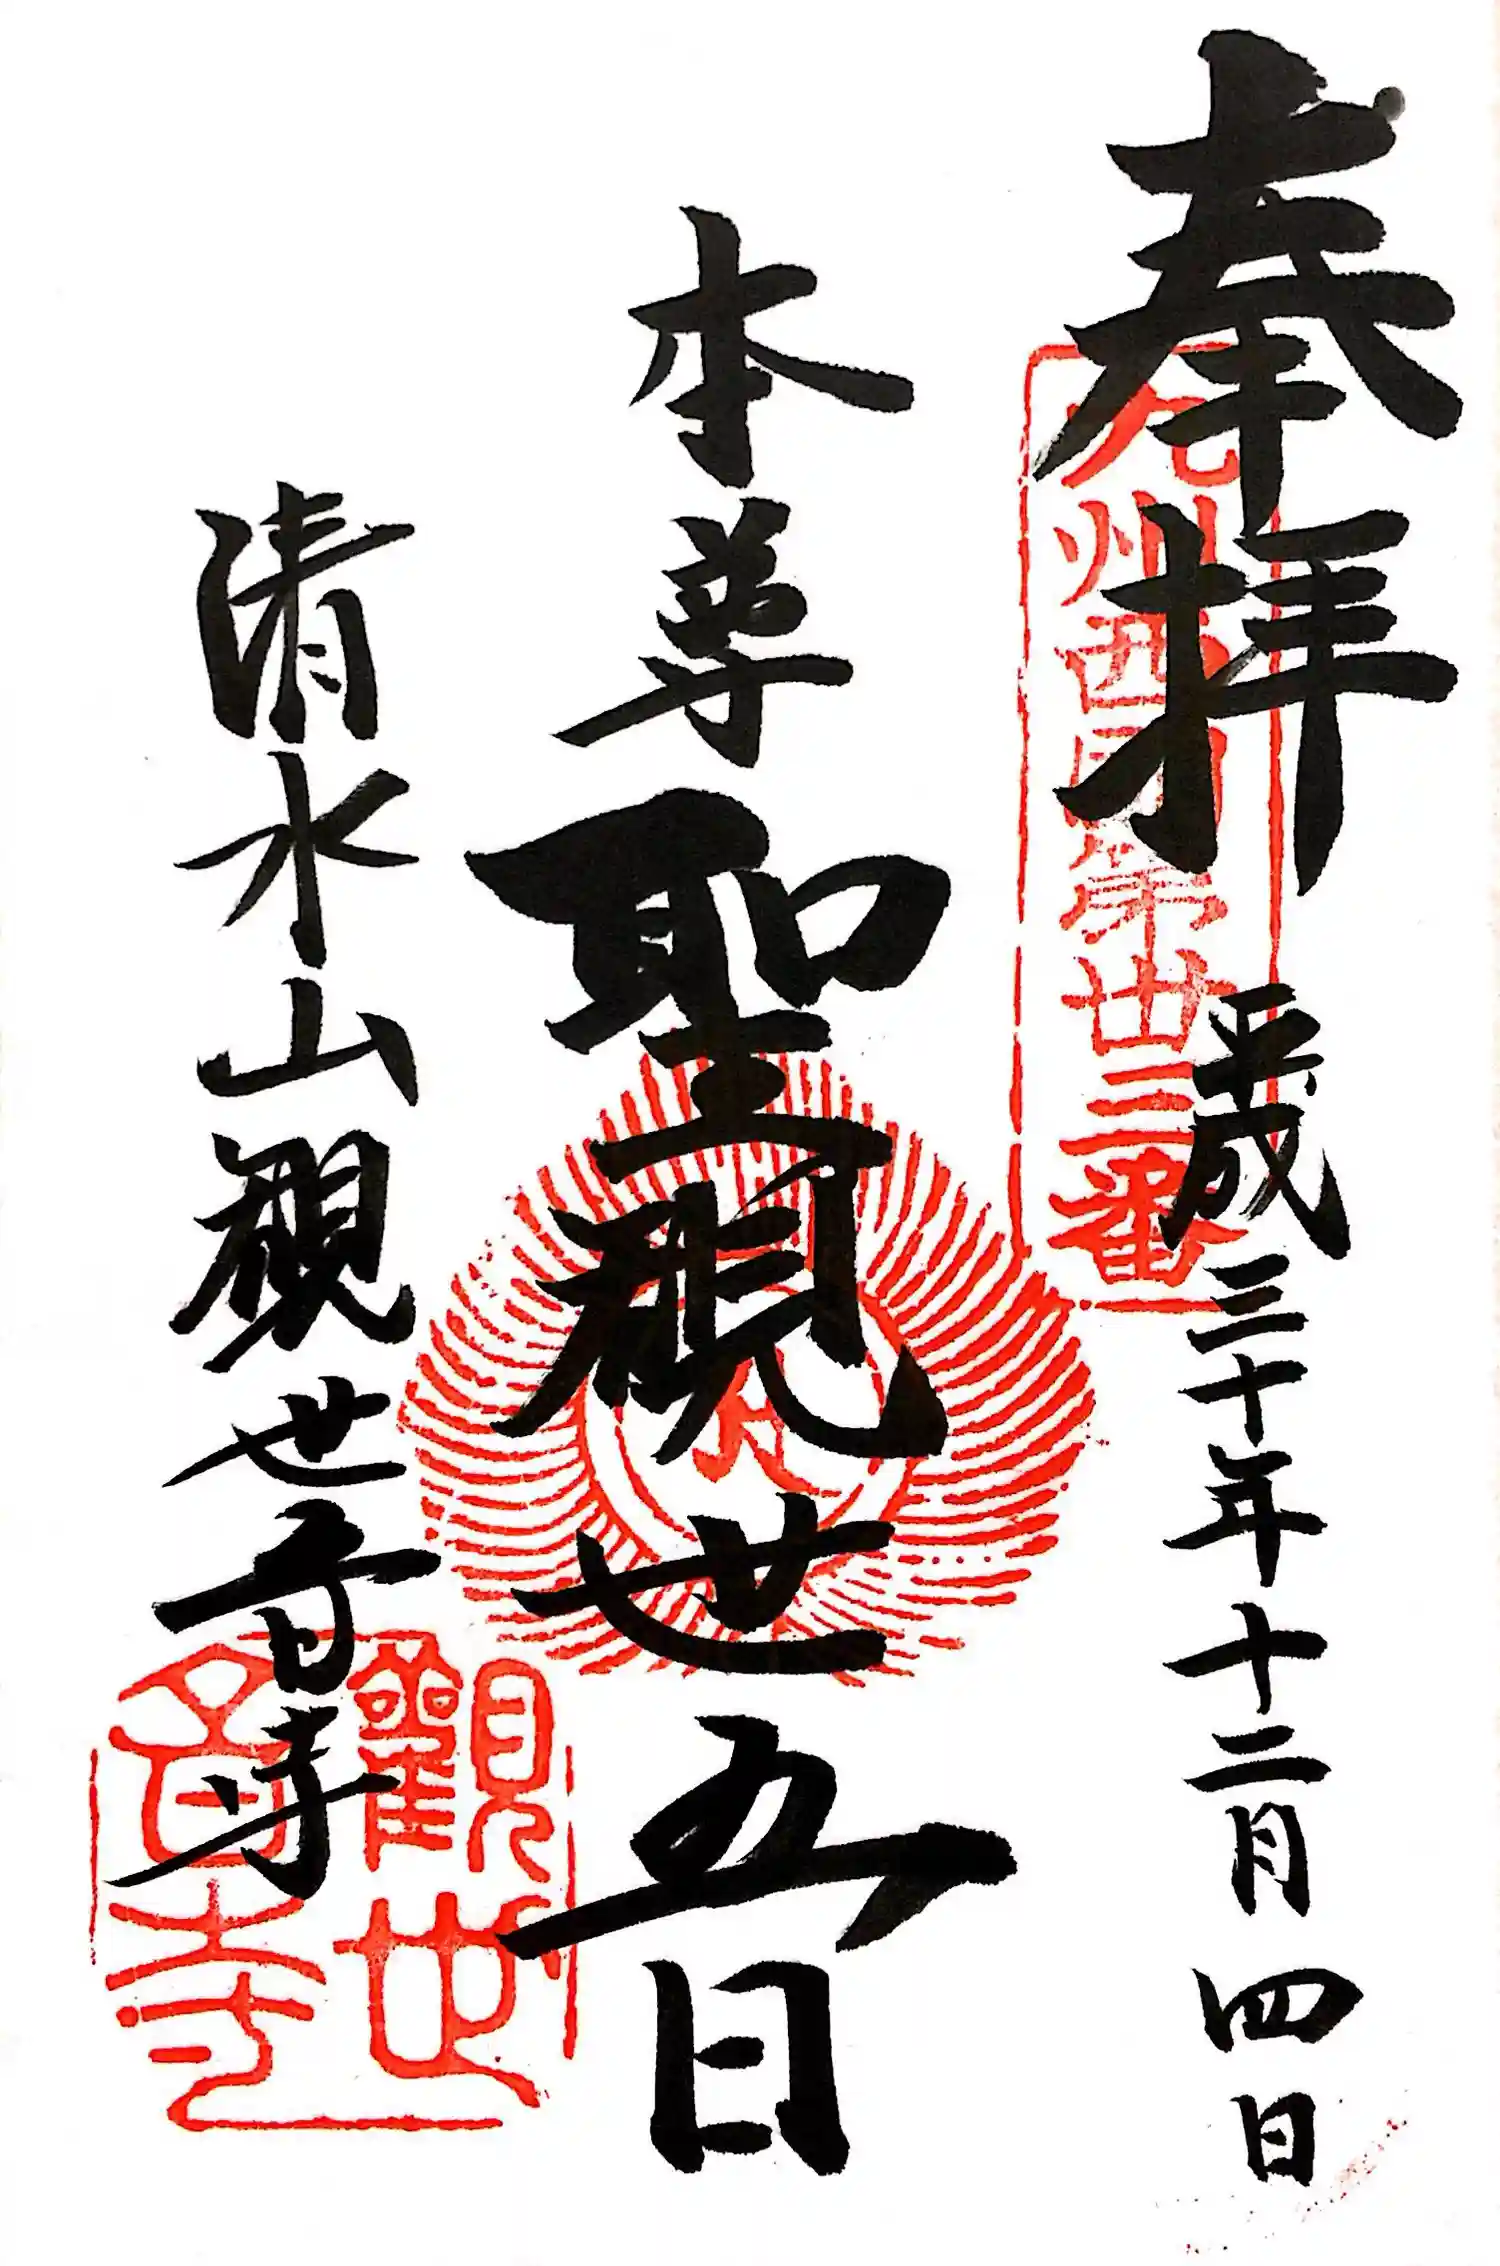 奉拝
平成三十年十二月四日
九州西国第丗三番
本尊聖観世音
清水山観世音寺
觀世音寺